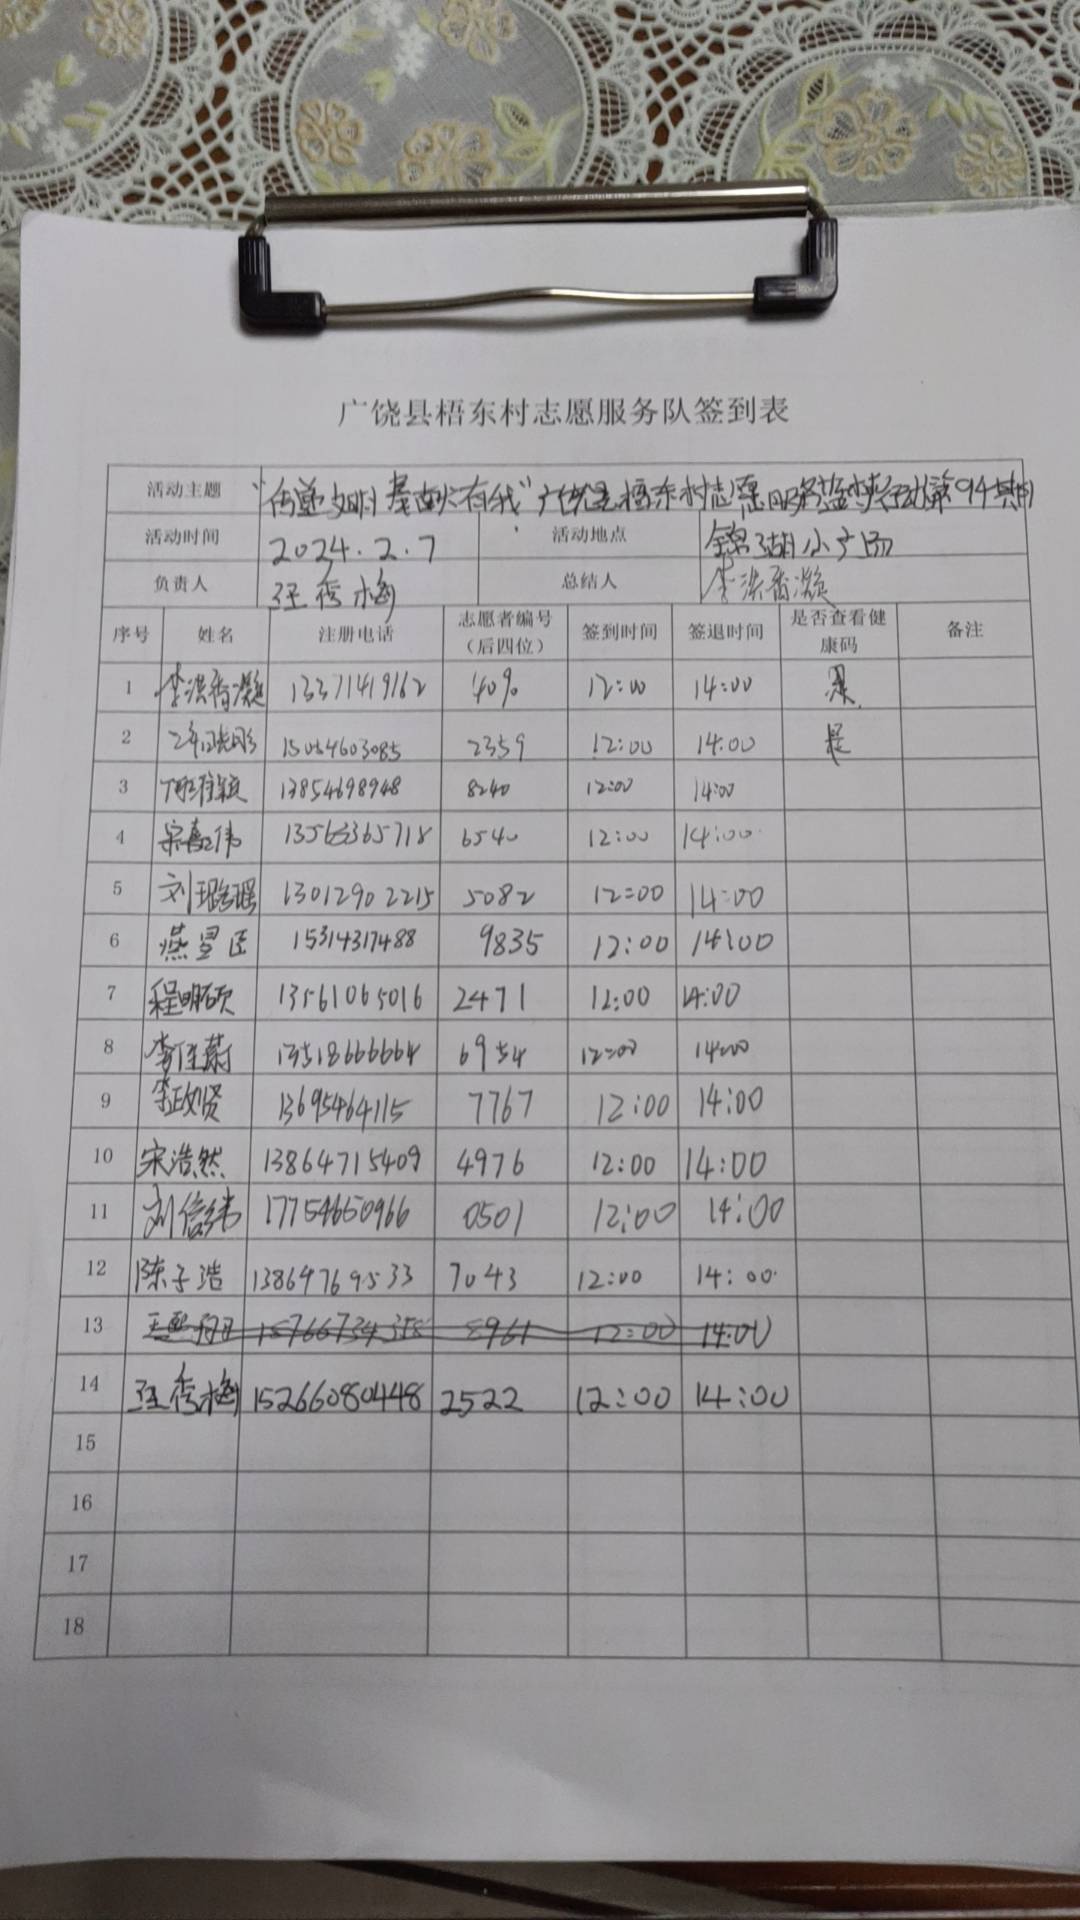 广饶县梧东村志愿服务队签到表
活动主题 广饶县梧东村志愿服务 第94期
活动时间 2024.2.7 活动地点 锦湖小广场
负责人 王秀梅 总结人 李洪香凝
序号 姓名 注册电话 志愿者编号（后四位） 签到时间 签退时间 是否查看健康码 备注
1 李洪香凝 13371419162 12:00 14:00 是
2 15054603085 2359 12:00 14:00 是
3 13854698948 8240 12:00 14:00
4 宋嘉伟 13563365718 6540 12:00 14:00
5 刘璐瑶 13012902215 5082 12:00 14:00
6 燕昱臣 15314317488 9835 12:00 14:00
7 程明硕 13561065016 2471 12:00 14:00
8 李佳蔚 13518666664 6954 12:00 14:00
9 李政贤 13695464115 7767 12:00 14:00
10 宋浩然 13864715409 4976 12:00 14:00
11 刘信纬 17754650966 0501 12:00 14:00
12 陈子浩 13869769533 7043 12:00 14:00
13 15766734358 8961 12:00 14:00
14 王秀梅 15266080448 2522 12:00 14:00
15
16
17
18